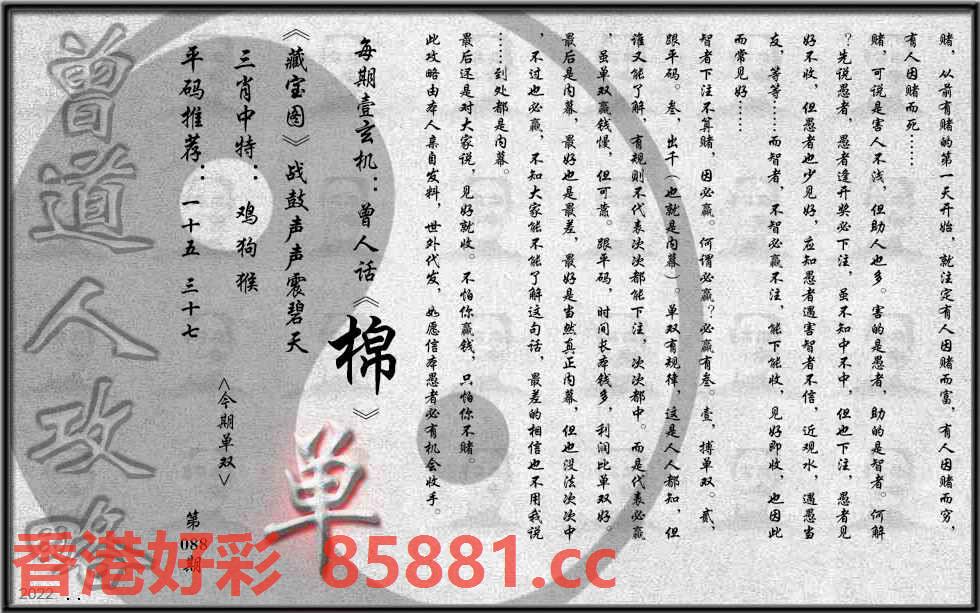 赌，从前有赌的第一天开始，就注定有人因赌而富，有人因赌而穷，
有人因赌而死……
赌，可说是害人不浅，但助人也多。害的是愚者，助的是智者。何解
？先说愚者，愚者逢开奖必下注，虽不知中不中，但也下注，愚者见
好不收，但愚者也少见好，应知愚者遇害智者不信，近观水，遇愚当
友，等等……而智者，不智必赢不注，能下能收，见好即收，也因此
而常见好……
智者下注不算赌，因必赢。何谓必赢？必赢有叁。壹，搏单双。贰，
跟平码。叁，出千（也就是内幕）。单双有规律，这是人人都知，但
谁又能了解，有规则不代表次次都能下注，次次都中。而是代表必赢
，虽单双赢钱慢，但可靠。跟平码，时间长本钱多，利润比单双好。
最后是内幕，最好也是最差，最好是当然真正内幕，但也没法次次中
，不过也必赢，不知大家能不能了解这句话，最差的相信也不用我说
……到处都是内幕。
最后还是对大家说，见好就收。不怕你赢钱，只怕你不赌。
此攻略由本人亲自发料，世外代发，如愿信本愚者必有机会收手。
每期壹玄机：曾人话《棉》
《藏宝图》战鼓声声震碧天
三肖中特：鸡狗猴
平码推荐：一十五 三十七
<今期单双>
单
第088期
曾道人攻略
香港好彩 85881.cc
2022